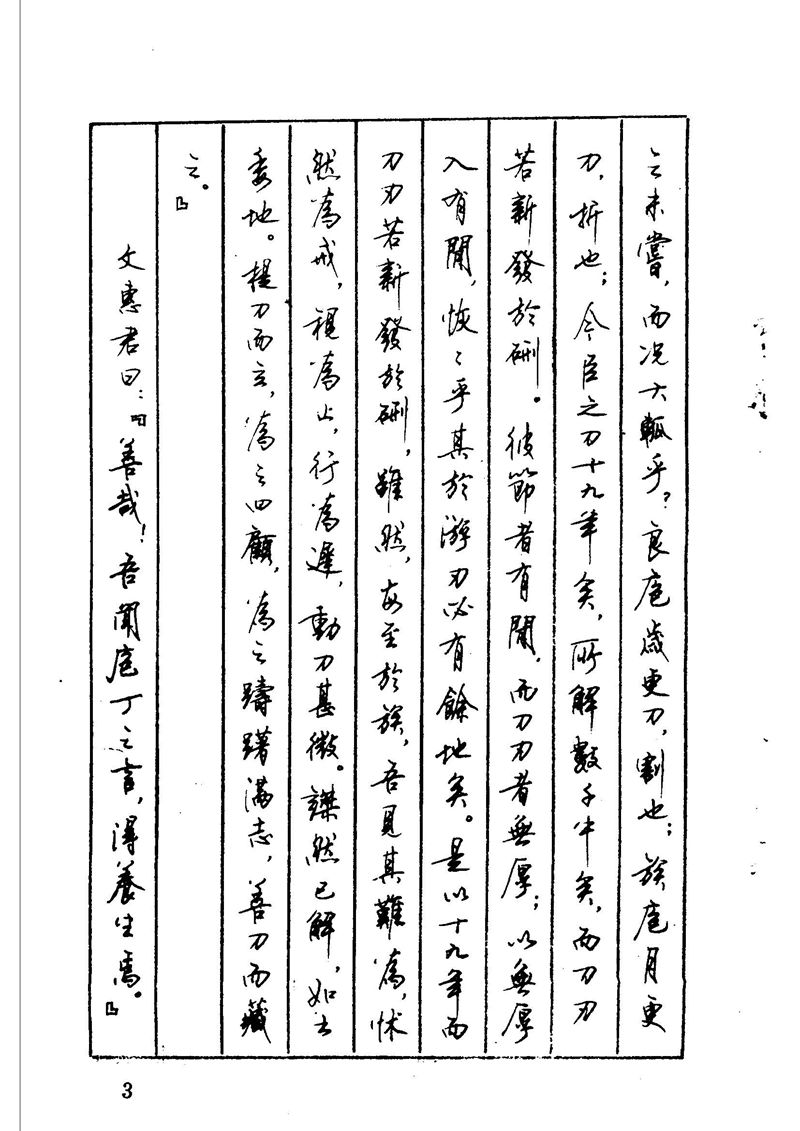 之未嘗，而况大軱乎？良庖歲更刀，割也；族庖月更
刀，折也；今臣之刀十九年矣，所解數千牛矣，而刀刃
若新發於硎。彼節者有間，而刀刃者無厚；以無厚
入有間，恢〻乎其於游刃必有餘地矣。是以十九年而
刀刃若新發於硎，雖然，每至於族，吾見其難為，怵
然為戒，視為止，行為遲，動刀甚微。謋然已解，如土
委地。提刀而立，為之四顧，為之躊躇滿志，善刀而藏
之。』
文惠君曰：『善哉！吾聞庖丁之言，得養生焉。』
3